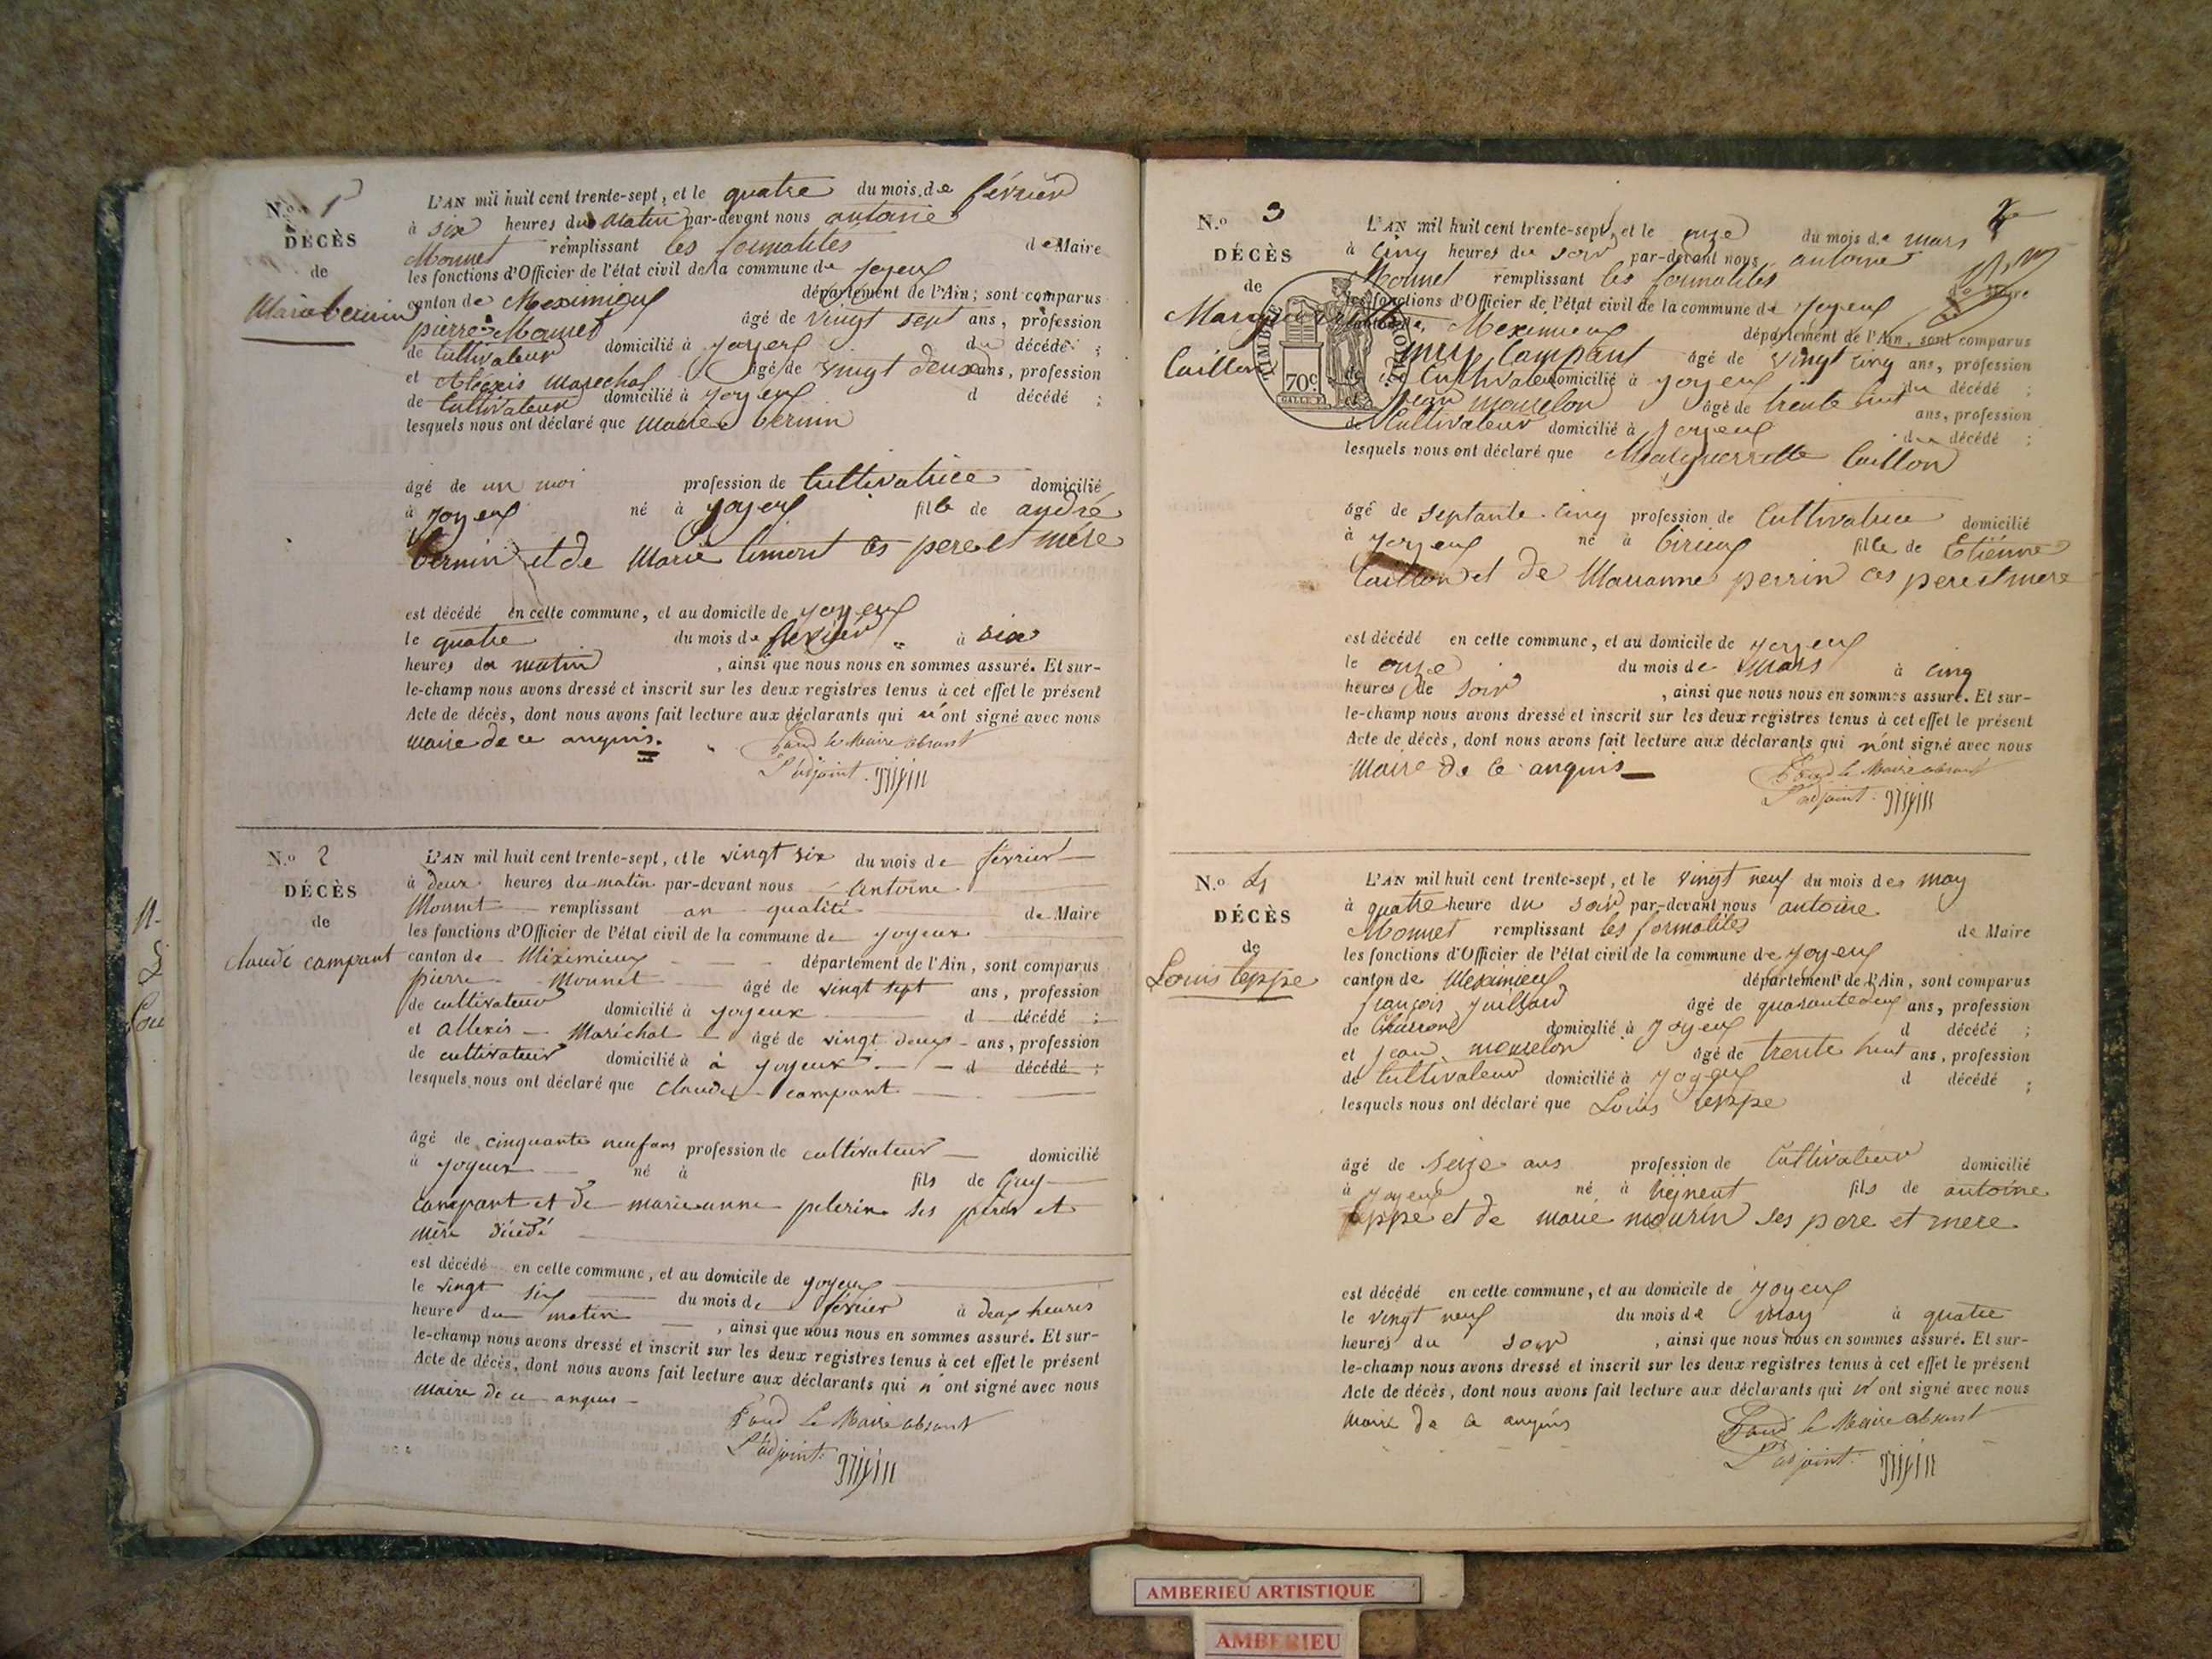 N.º 1
DÉCÈS
de
Marie bernin
L'AN mil huit cent trente-sept, et le quatre du mois de février
à six heures du Matin par-devant nous antoine
Monnet remplissant les formalites de Maire
les fonctions d'Officier de l'état civil de la commune de Joyeux
canton de Meximieux département de l'Ain; sont comparus
pierre Monnet âgé de vingt sept ans, profession
de Cultivateur domicilié à joyeux du décédé ;
et Alexis Marechal âgé de vingt deux ans, profession
de Cultivateur domicilié à joyeux d décédé ;
lesquels nous ont déclaré que Marie bernin
âgé de un moi profession de Cultivatrice domicilié
à joyeux né à joyeux fille de andré
bernin et de Marie as pere et mére
est décédé en cette commune, et au domicile de joyeux
le quatre du mois de fevrier à six
heures du matin , ainsi que nous nous en sommes assuré. Et sur-
le-champ nous avons dressé et inscrit sur les deux registres tenus à cet effet le présent
Acte de décès, dont nous avons fait lecture aux déclarants qui n'ont signé avec nous
maire de ce anquis.
le Maire absant
L'adjoint
N.º 2
DÉCÈS
de
claude campant
L'AN mil huit cent trente-sept, et le vingt six du mois de février
à deux heures du matin par-devant nous Antoine
Monnet remplissant an qualité de Maire
les fonctions d'Officier de l'état civil de la commune de joyeux
canton de Miximieux département de l'Ain, sont comparus
pierre Monnet âgé de vingt sept ans, profession
de cultivateur domicilié à joyeux d décédé ;
et allexis Maréchal âgé de vingt deux ans, profession
de cultivateur domicilié à à joyeux d décédé ;
lesquels nous ont déclaré que claude campant
âgé de cinquante neuf ans profession de cultivateur domicilié
à joyeux né à fils de Guy
campant et de marie anne pelerin ses pére et
mère décédé
est décédé en cette commune, et au domicile de joyeux
le vingt six du mois de février à deux heures
heure du matin , ainsi que nous nous en sommes assuré. Et sur-
le-champ nous avons dressé et inscrit sur les deux registres tenus à cet effet le présent
Acte de décès, dont nous avons fait lecture aux déclarants qui n'ont signé avec nous
maire de ce anquis
Le Maire absant
L'adjoint
N.º 3
DÉCÈS
de
Margueritte
Caillon
TIMBRE ROYAL
70c
L'AN mil huit cent trente-sept, et le onze du mois de mars
à cinq heures du soir par-devant nous antoine
Monnet remplissant les formalites de Maire
les fonctions d'Officier de l'état civil de la commune de joyeux
canton de Meximieux département de l'Ain, sont comparus
Campant âgé de vingt cinq ans, profession
de Cultivateur domicilié à joyeux du décédé ;
et jean mouselon âgé de trente huit ans, profession
de Cultivateur domicilié à joyeux du décédé ;
lesquels nous ont déclaré que Marguerrette Caillon
âgé de septante cinq profession de Cultivatrice domicilié
à joyeux né à birieux fille de Etiénne
Caillon et de Marianne perrin as pere et mere
est décédé en cette commune, et au domicile de joyeux
le onze du mois de Mars à cinq
heures de soir , ainsi que nous nous en sommes assuré. Et sur-
le-champ nous avons dressé et inscrit sur les deux registres tenus à cet effet le présent
Acte de décès, dont nous avons fait lecture aux déclarants qui n'ont signé avec nous
Maire de ce anquis
le Maire absant
L'adjoint
N.º 4
DÉCÈS
de
Louis teppe
L'AN mil huit cent trente-sept, et le vingt neuf du mois de may
à quatre heure du soir par-devant nous antoine
Monnet remplissant les formalités de Maire
les fonctions d'Officier de l'état civil de la commune de joyeux
canton de Meximieux département de l'Ain, sont comparus
françois juillard âgé de quarante deux ans, profession
de Charron domicilié à joyeux d décédé ;
et jean mouselon âgé de trente huit ans, profession
de Cultivateur domicilié à joyeux d décédé ;
lesquels nous ont déclaré que Louis teppe
âgé de seize ans profession de Cultivateur domicilié
à joyeux né à fils de antoine
teppe et de marie mourin ses pere et mere
est décédé en cette commune, et au domicile de joyeux
le vingt neuf du mois de may à quatre
heures du soir , ainsi que nous nous en sommes assuré. Et sur-
le-champ nous avons dressé et inscrit sur les deux registres tenus à cet effet le présent
Acte de décès, dont nous avons fait lecture aux déclarants qui n'ont signé avec nous
maire de ce anquis
le Maire absant
L'adjoint
AMBERIEU ARTISTIQUE
AMBERIEU